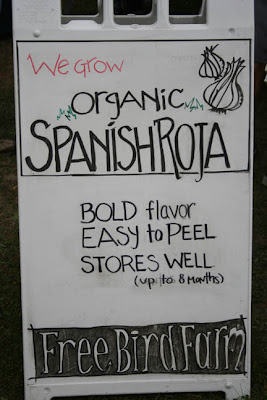 We grow
organic
SPANISH ROJA
BOLD flavor
EASY to PEEL
STORES WELL
(up to 8 months)
Free Bird Farm